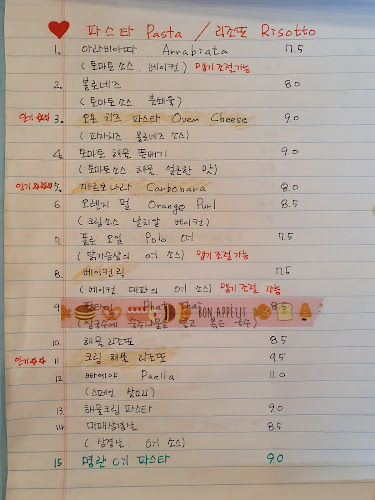 ♥ 파스타 Pasta / 리조또 Risotto
1. 아라비아따 Arrabiata 7.5
(토마토 소스, 베이컨) 맵기 조절 가능
2. 볼로네즈 8.0
(토마토 소스
인기 3. 오븐 치즈 파스타 Oven Cheese 9.0
(피자치즈. 볼로네즈 소스)
4. 토마토 해물 뚝배기 9.0
(토마토소스. 해물. 얼큰한 맛)
인기 5. 까르보나라 Carbonara 8.0
6. 오렌지 펄 Orange Purl 8.5
(크림소스, 날치알, 베이컨)
7. 폴로 오일 Polo 7.5
(닭가슴살의 소스) 맵기 조절 가능
8. 베이컨 7.5
(베이컨 대파의 소스) 맵기 조절 가능
9. 팟타이 Phat Thai 8.5
BON APPETIT
10. 해물 리조또 8.5
인기 11. 크림 해물 리조또 9.5
12. 빠에야 Paella 11.0
(스페인
13. 해물크림 파스타 9.0
14. 대패삼겹살 8.5
(삼겹살. 소스)
15. 명란 Oil 파스타 9.0